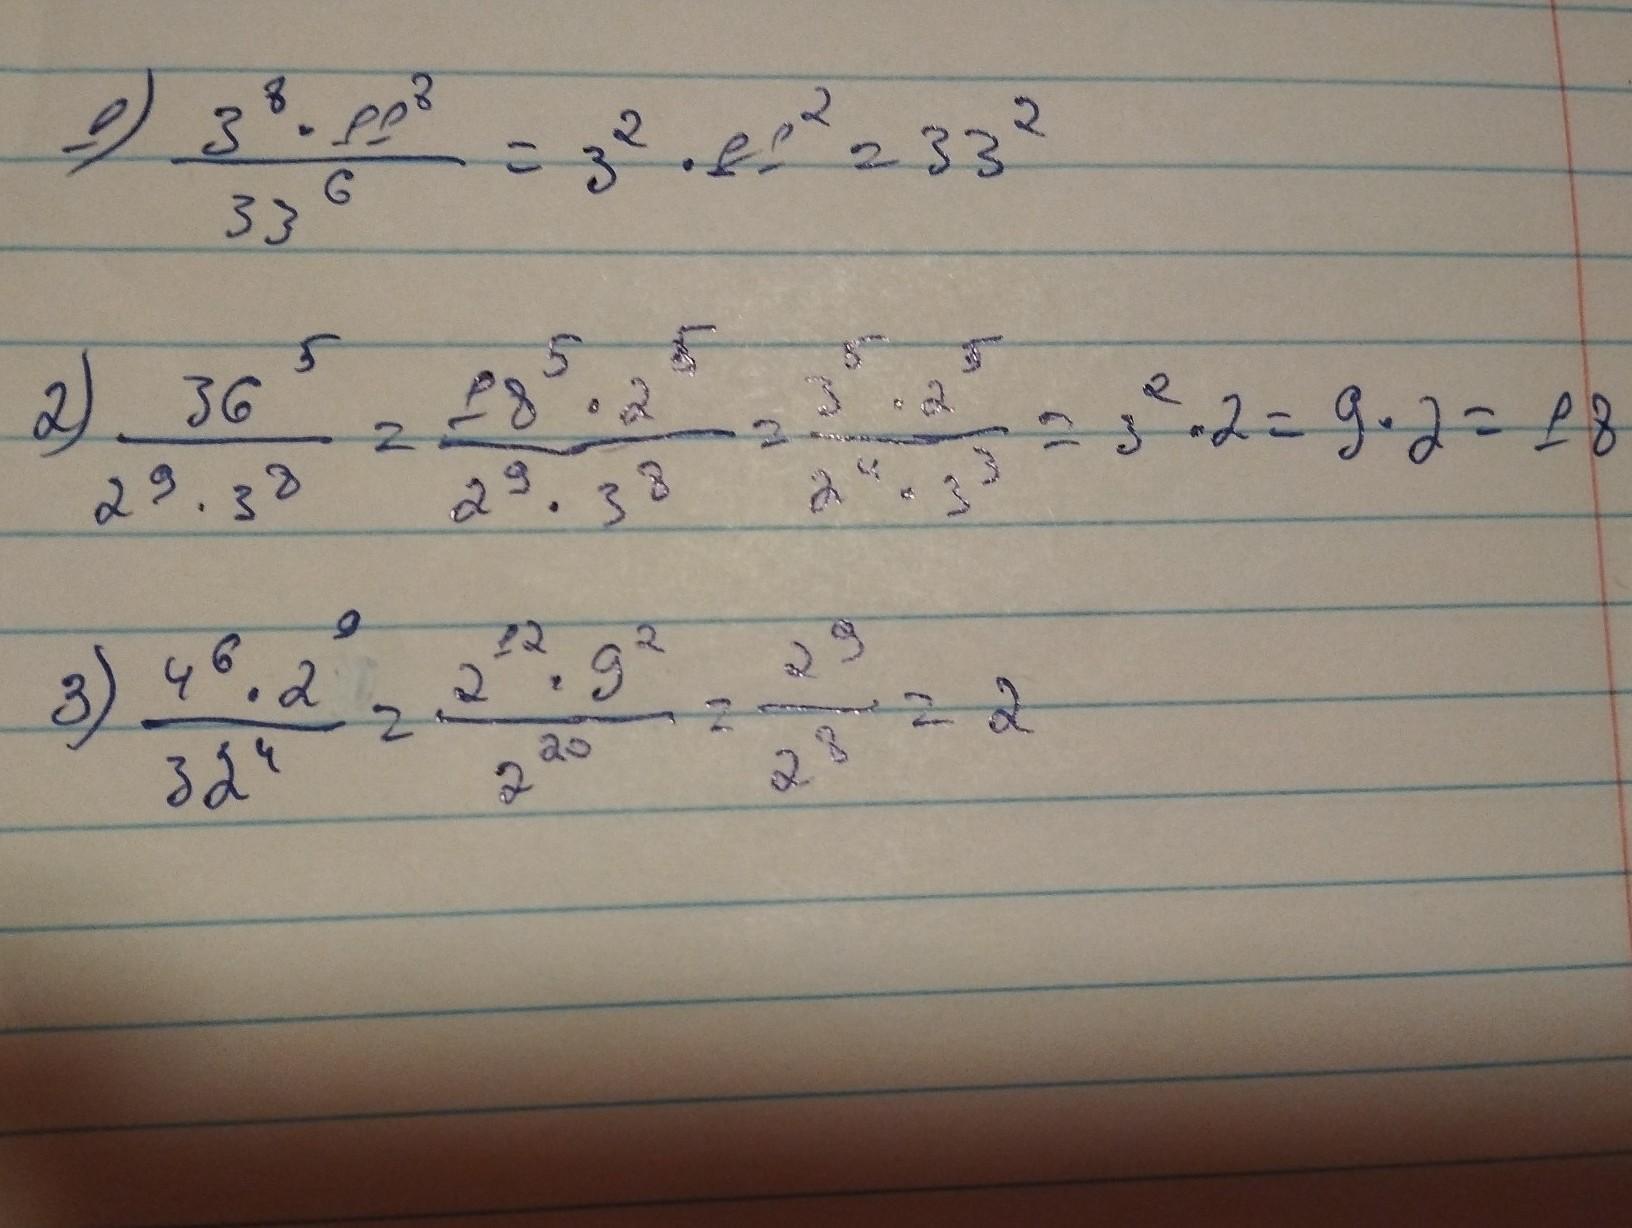 1) 3^8 · 11^8 / 33^6 = 3^2 · 11^2 = 33^2
2) 36^5 / 2^9 · 3^8 = 18^5 · 2^5 / 2^9 · 3^8 = 3^5 · 2^5 / 2^4 · 3^3 = 3^2 · 2 = 9 · 2 = 18
3) 4^6 · 2^9 / 32^4 = 2^12 · 9^2 / 2^20 = 2^9 / 2^8 = 2